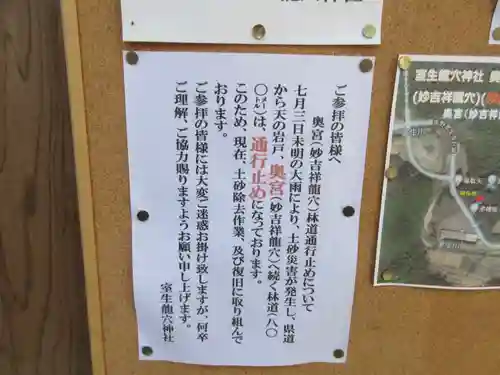 ご参拝の皆様へ
奥宮(妙吉祥龍穴)林道通行止めについて
七月三日未明の大雨により、土砂災害が発生し、県道
から天の岩戸、奥宮(妙吉祥龍穴)へ続く林道(八〇
〇メートル)は、通行止めになっております。
このため、現在、土砂除去作業、及び復旧に取り組んで
おります。
ご参拝の皆様には大変ご迷惑お掛け致しますが、何卒
ご理解、ご協力賜りますようお願い申し上げます。
室生龍穴神社
室生龍穴神社 奥
(妙吉祥龍穴)(
奥宮(妙吉祥